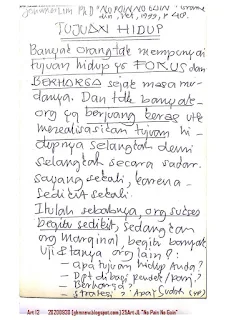 TUJUAN HIDUP
Banyak orang tak mempunyai
tujuan hidup yg FOKUS dan
BERHARGA sejak masa mu-
danya. Dan tdk banyak
org yg berjuang keras utk
merealisasikan tujuan hi-
dupnya selangkah demi
selangkah secara sadar.
sayang sekali, karena
sedikit sekali.
Itulah sebabnya, org sukses
begitu sedikit, sedangkan
org marginal, begitu banyak
Uji & tanya org lain?:
- apa tujuan hidup Anda?
- Dpt dibagi pendek/panj.?
- Berharga?
- strategi? Apa? Sudah
Art 12 20200800 [gkmnrem.blogspot.com] 25Art JL "No Pain No Gain"